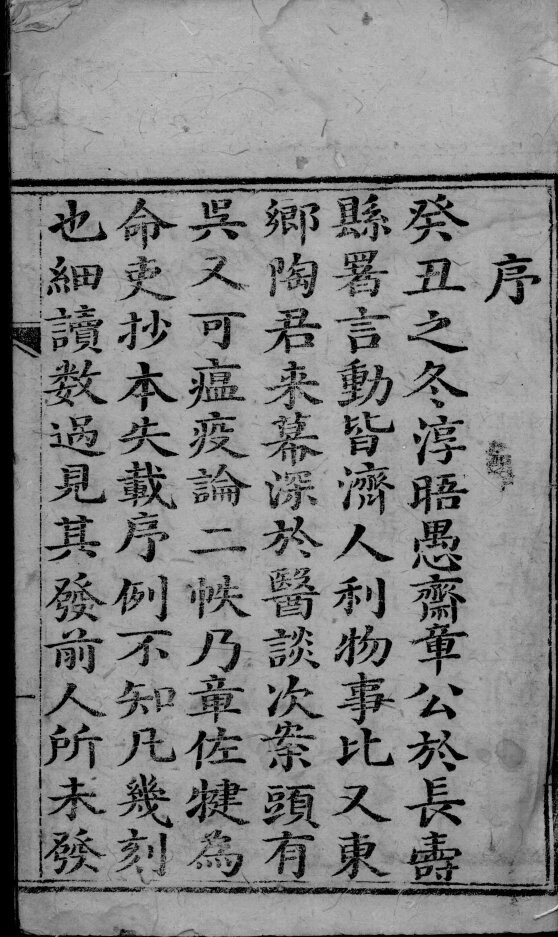 序
癸丑之冬淳晤愚齋章公於長壽
縣署言動皆濟人利物事比又東
鄉陶君来幕深於醫談次案頭有
吳又可瘟疫論二帙乃章佐犍為
命吏抄本失載序例不知凡幾刻
也細讀数過見其發前人所未發